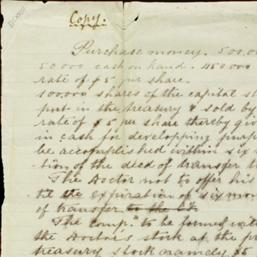 Copy.
Purchase money. 500.0
50.000 cash on hand. 450.000
rate of $5 per share.
100.000 shares of the capital st
put in the treasury & sold by
rate of $5 per share thereby giv
in cash for developping purp
be accomplished within six
tion of the deed of transfer t
The Doctor not to offer his
til the expiration of six mo
of transfer to the
The comp. to be formed wit
the Doctor's stock at the pr
treasury stock namely $5